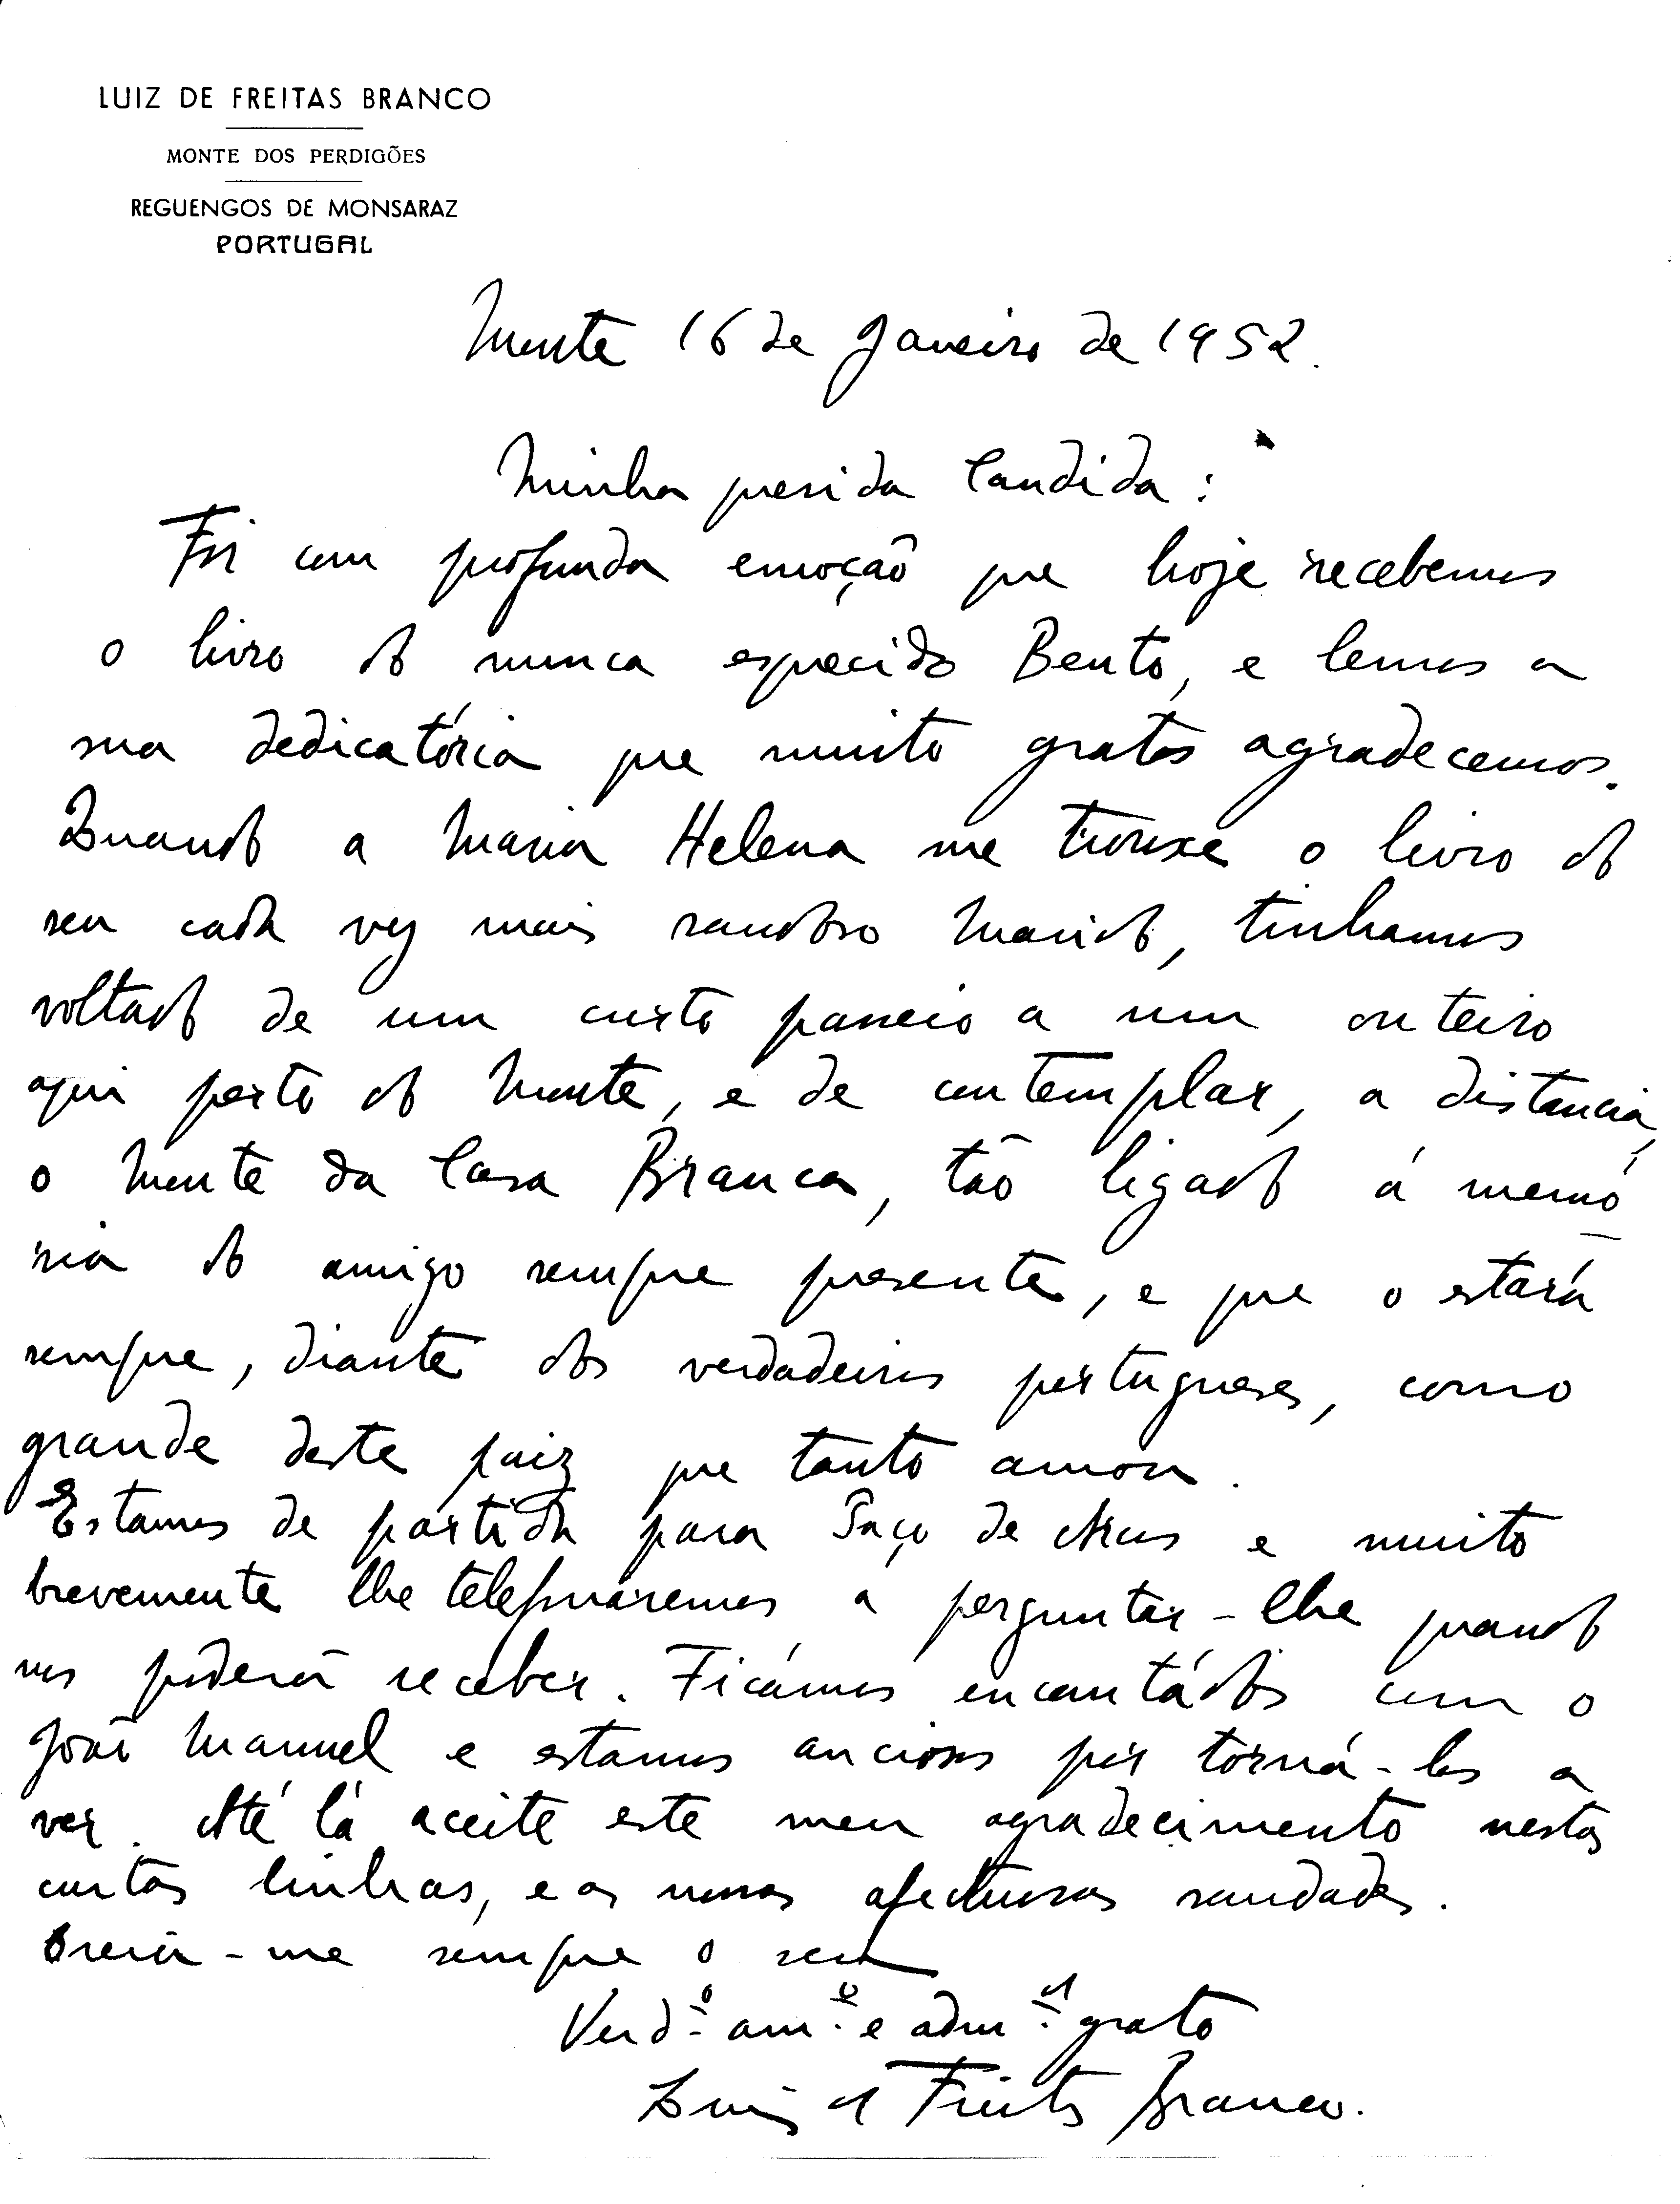 LUIZ DE FREITAS BRANCO
MONTE DOS PERDIGÕES
REGUENGOS DE MONSARAZ
PORTUGAL
Monte 16 de Janeiro de 1952.
Minha querida Candida:
Foi com profunda emoção que hoje recebemos
o livro do nunca esquecido Bento, e lemos a
sua dedicatória que muito gratos agradecemos.
Quando a Maria Helena me trouxe o livro do
seu cada vez mais saudoso Marido, tinhamos
voltado de um curto passeio a um outeiro
aqui perto do Monte, e de contemplar, a distancia,
o Monte da Casa Branca, tão ligado á memó
ria do amigo sempre presente, e que o estará
sempre, diante dos verdadeiros portugueses, como
grande deste paiz que tanto amou.
Estamos de partida para Paço de Arcos e muito
brevemente lhe telefonáremos a perguntar-lhe quando
nos poderá receber. Ficámos encantádos com o
João Manuel e estamos anciosos por torná-los a
ver. Até lá aceite este meu agradecimento nestas
curtas linhas, e as nossas afectuosas saudades.
Creia-me sempre o seu
Verd.º am.º e adm.ºʳ grato
Luiz de Freitas Branco.